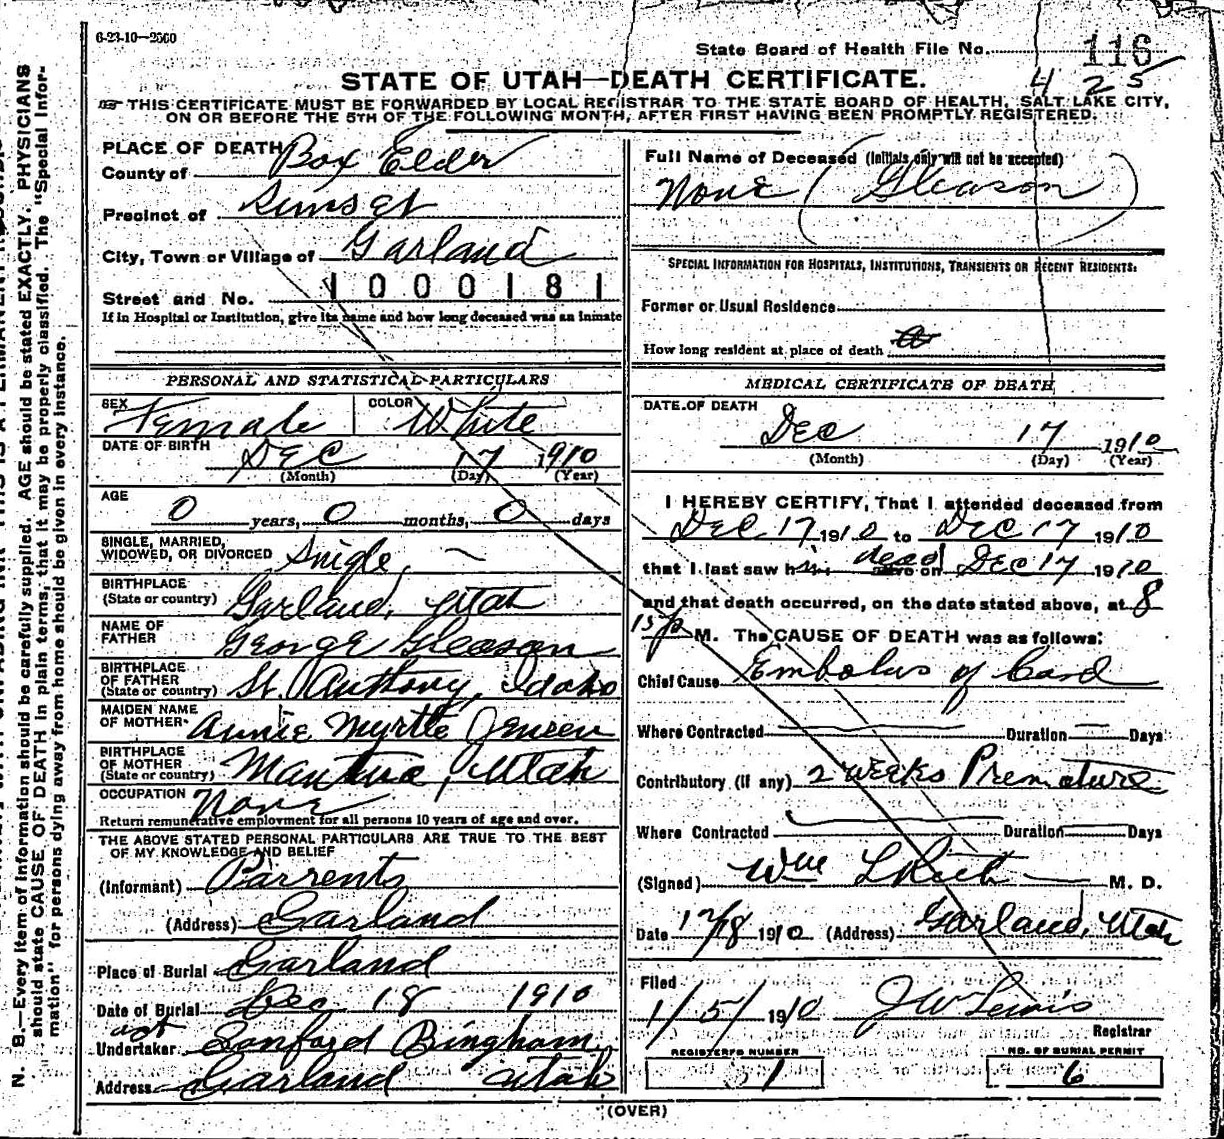 6-23-10-2500
State Board of Health File No. 116
425
STATE OF UTAH—DEATH CERTIFICATE.
THIS CERTIFICATE MUST BE FORWARDED BY LOCAL REGISTRAR TO THE STATE BOARD OF HEALTH, SALT LAKE CITY,
ON OR BEFORE THE 5TH OF THE FOLLOWING MONTH, AFTER FIRST HAVING BEEN PROMPTLY REGISTERED.
PLACE OF DEATH
County of Box Elder
Precinct of Sunset
City, Town or Village of Garland
Street and No. 1000181
If in Hospital or Institution, give its name and how long deceased was an inmate
PERSONAL AND STATISTICAL PARTICULARS
SEX Female COLOR White
DATE OF BIRTH Dec 17 1910
(Month) (Day) (Year)
AGE
0 years, 0 months, 0 days
SINGLE, MARRIED,
WIDOWED, OR DIVORCED Single
BIRTHPLACE
(State or country) Garland, Utah
NAME OF
FATHER George Gleason
BIRTHPLACE
OF FATHER
(State or country) St. Anthony, Idaho
MAIDEN NAME
OF MOTHER Annie Myrtle Jensen
BIRTHPLACE
OF MOTHER
(State or country) Mantua, Utah
OCCUPATION None
Return remunerative employment for all persons 10 years of age and over.
THE ABOVE STATED PERSONAL PARTICULARS ARE TRUE TO THE BEST
OF MY KNOWLEDGE AND BELIEF
(Informant) Parrents
(Address) Garland
Place of Burial Garland
Date of Burial Dec 18 1910
act
Undertaker Sanford Bingham
Address Garland Utah
Full Name of Deceased (Initials only will not be accepted)
None (Gleason)
SPECIAL INFORMATION FOR HOSPITALS, INSTITUTIONS, TRANSIENTS OR RECENT RESIDENTS:
Former or Usual Residence
How long resident at place of death
MEDICAL CERTIFICATE OF DEATH
DATE OF DEATH
Dec 17 1910
(Month) (Day) (Year)
I HEREBY CERTIFY, That I attended deceased from
Dec 17 1910 to Dec 17 1910
that I last saw h dead alive on Dec 17 1910
and that death occurred, on the date stated above, at 8
15 P M. The CAUSE OF DEATH was as follows:
Chief Cause Embolus of Cord
Where Contracted Duration Days
Contributory (if any) 2 weeks Premature
Where Contracted Duration Days
(Signed) Wm M. D.
Date 12/18 1910 (Address) Garland, Utah
Filed
1/5/1910 J W Lewis
Registrar
REGISTERED NUMBER
1
NO. OF BURIAL PERMIT
6
(OVER)
N. B.—Every item of information should be carefully supplied. AGE should be stated EXACTLY. PHYSICIANS
should state CAUSE OF DEATH in plain terms, that it may be properly classified. The "Special Infor-
mation" for persons dying away from home should be given in every instance.